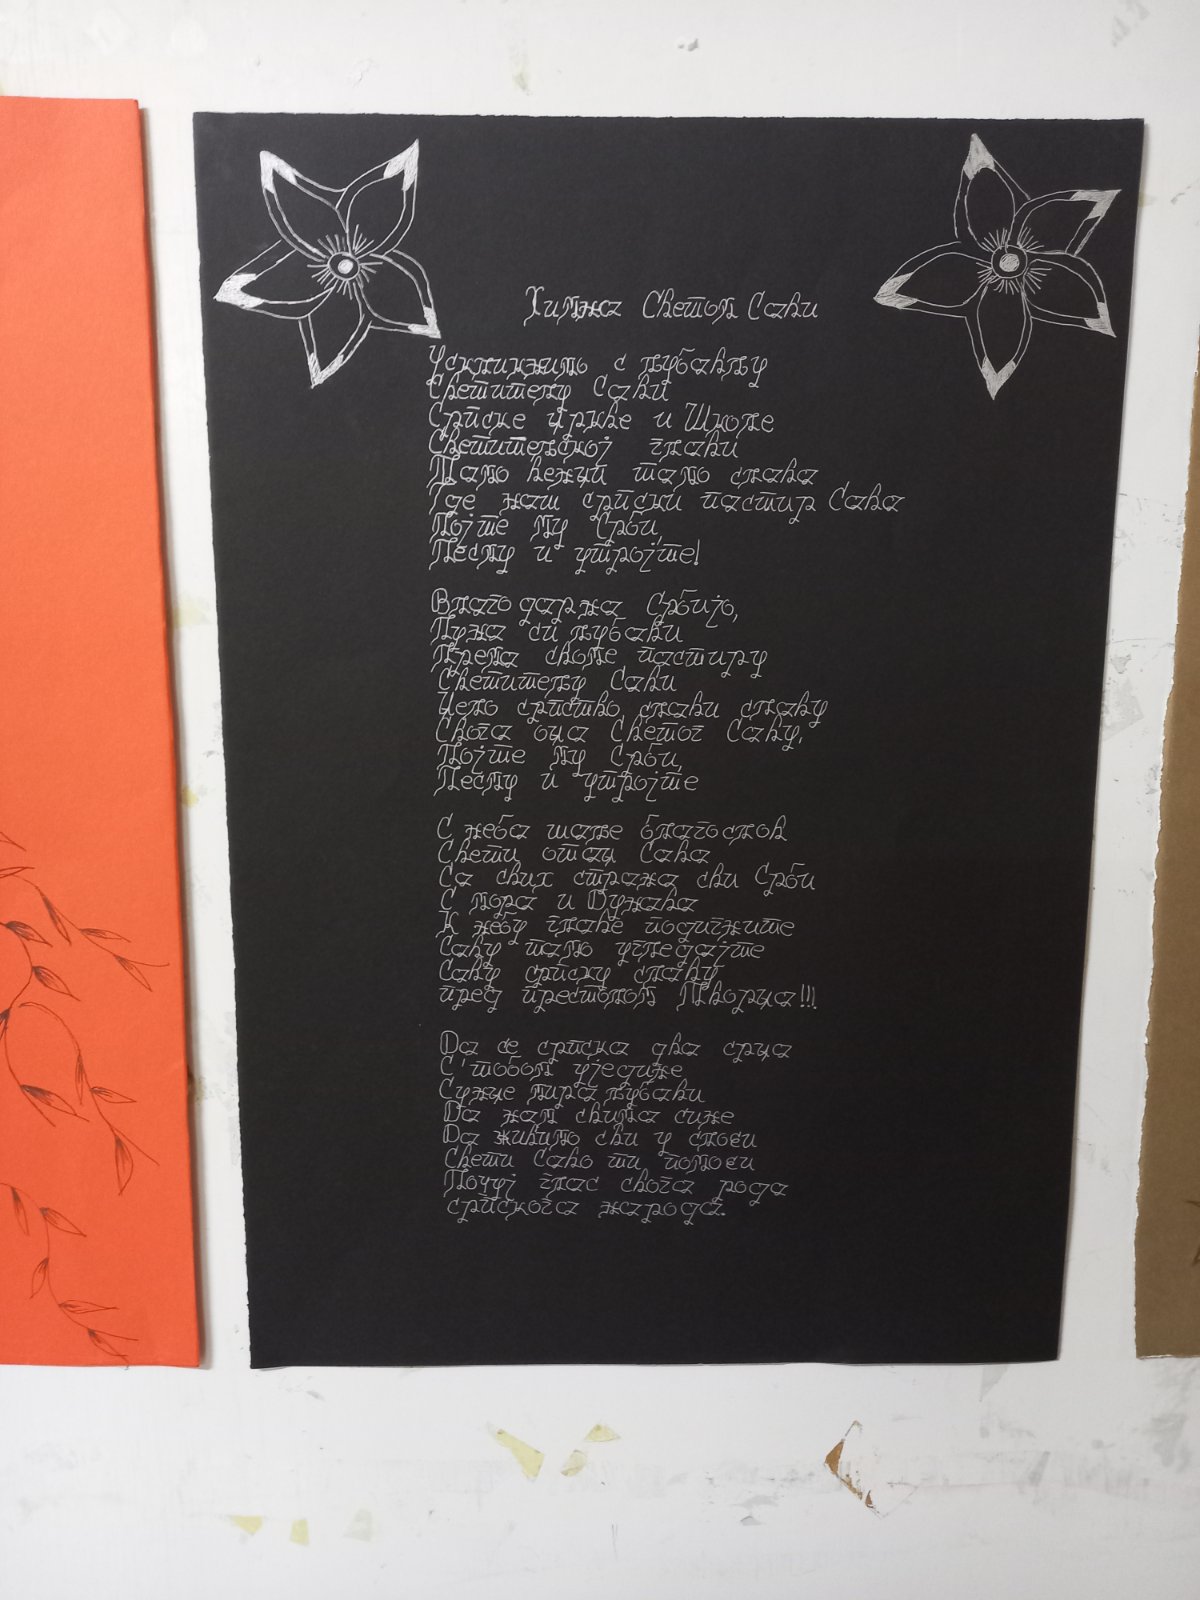 Химна Светом Сави
Ускликнимо с љубављу
Светитељу Сави
Српске цркве и Школе
Светитељској глави
Тамо венци тамо слава
Где наш српски пастир Сава
Појте му Срби,
Песму и утројте!
Благо дарна Србијо,
Пуна си љубави
Према своме пастиру
Светитељу Сави
Цело српство слави славу
Свога оца Светог Саву,
Појте му Срби,
Песму и утројте
С неба шаље благослов
Свети отац Сава
Са свих страна сви Срби
С мора и Дунава
К небу главе подигните
Саву тамо угледајте
Саву српску славу
пред престолом Творца!!!
Да се српска два срца
С'тобом уједине
Сунце мира љубави
Да нам свима сине
Да живимо сви у слози
Свети Саво ти помози
Почуј глас свога рода
српскога народа.